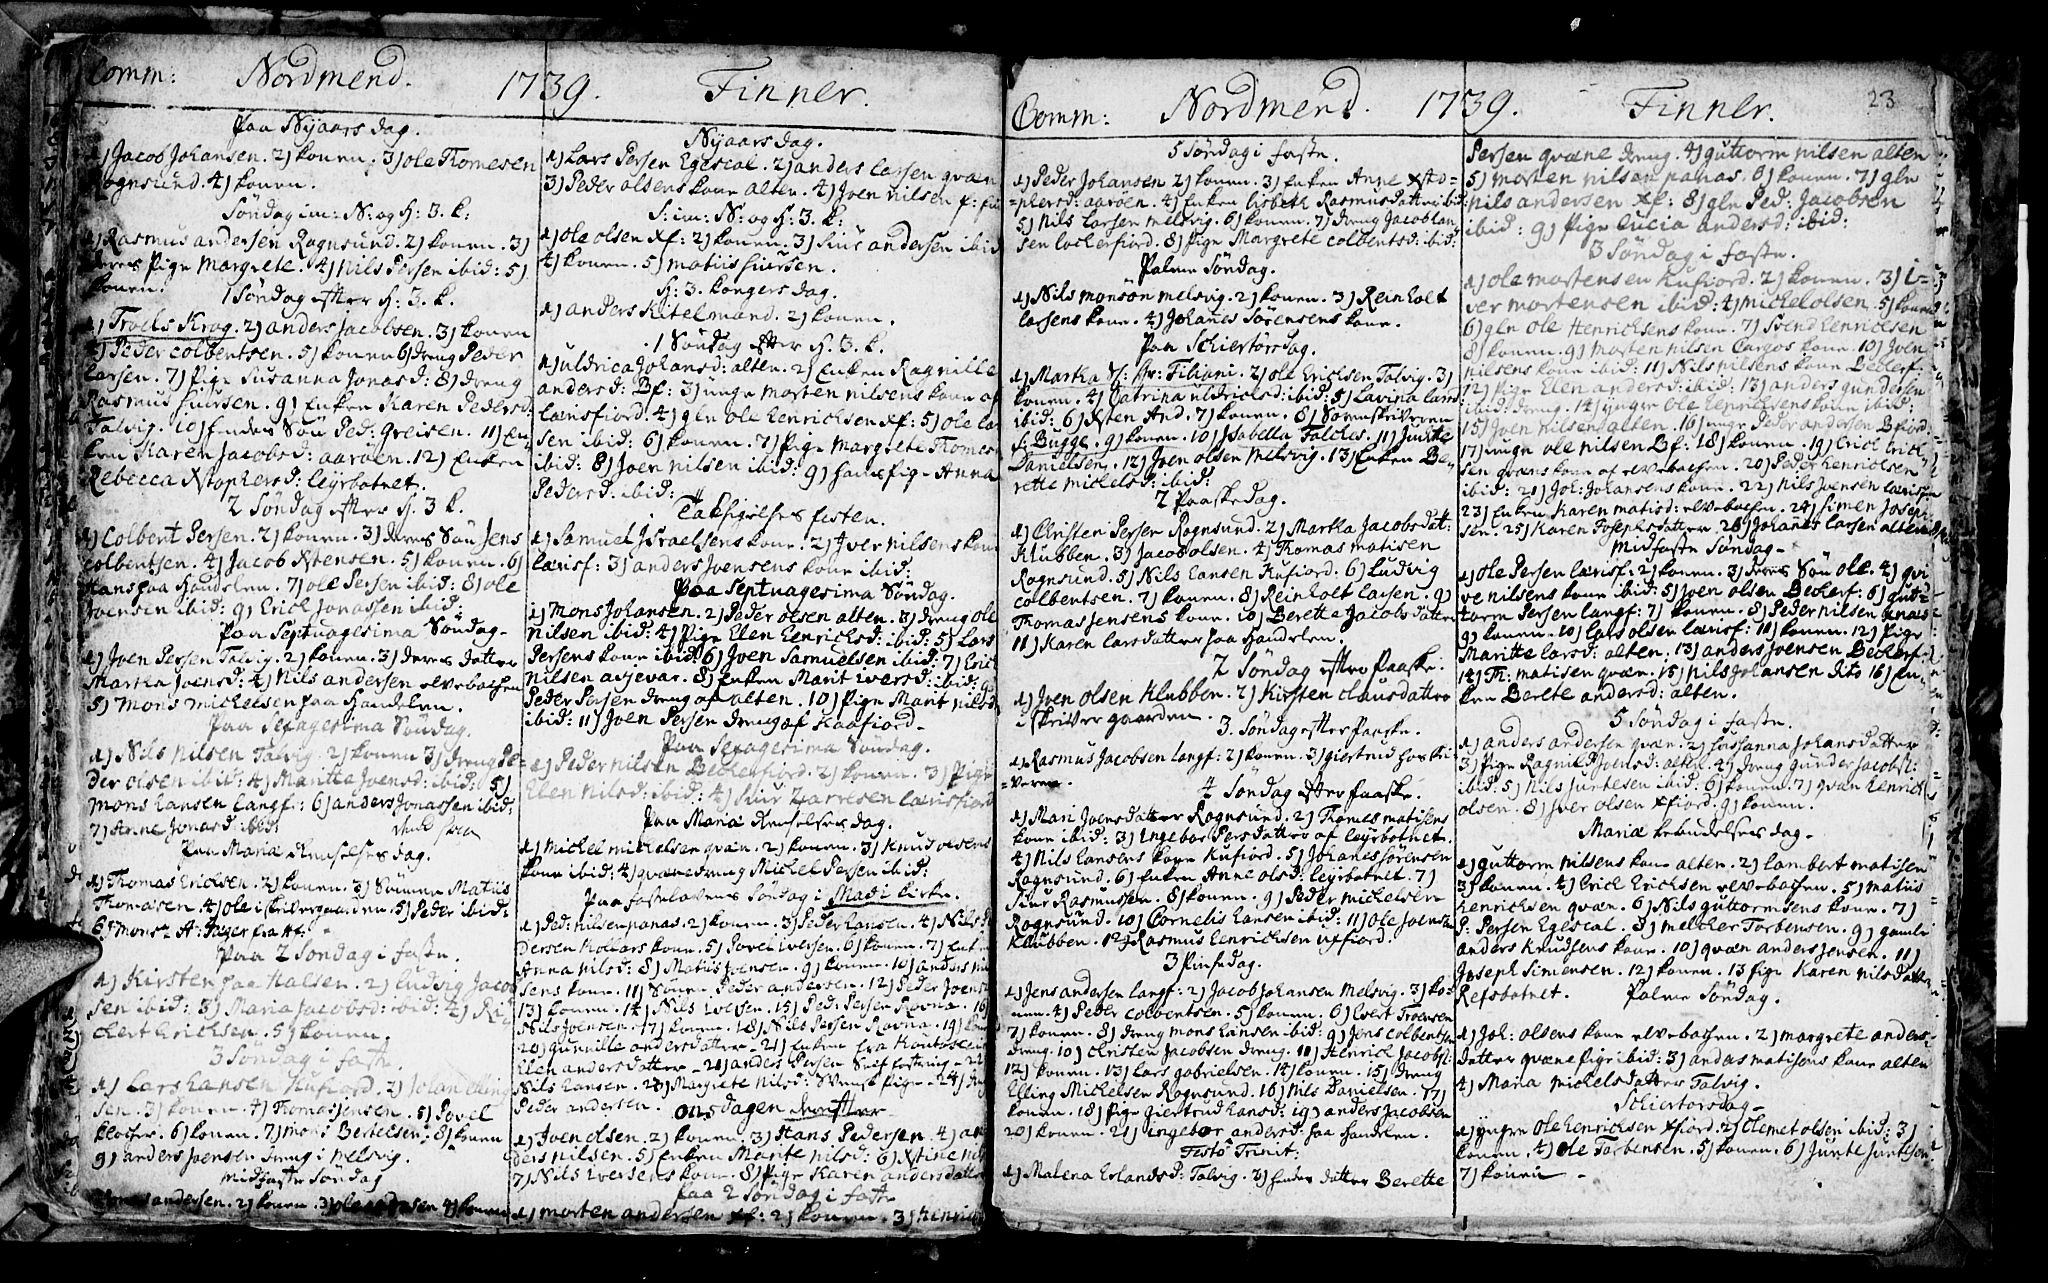 Comm: Nordmend. 1739. Finner.
Paa Nyaars dag.
1) Jacob Johansen. 2) konen. 3) ole Thomesen
Rognsund. 4) konen.
Søndag im: N: og H: 3. K:
1) Rasmus andersen Rognsund. 2) konen. 3)
deres Pige Margrete. 4) Nils Persen ibid: 5)
konen.
1 Søndag efter H: 3. K.
1) Troels Krog. 2) anders Jacobsen. 3) konen
4) Peder colbentsen. 5) konen 6) dreng Peder
Larsen. 7) Pige Susanna Jonasd: 8) dreng
Rasmus Siursen. 9) Enken Karen Pedersd:
Talvig. 10) hendes Søn Ped: Greisen. 11) En-
ken Karen Jacobsd: aaroen. 12) Enken
Rebecca Xstophersd: Leyrbotnet.
2 Søndag efter H. 3 K.
1) Colbent Persen. 2) konen. 3) deres Søn Jens
colbentsen. 4) Jacob Xstensen. 5) konen. 6)
Hans paa Handelen. 7) ole Persen ibid: 8) ole
Joensen ibid: 9) Erich Jonassen ibid:
Paa Septuagesima Søndag.
1) Joen Persen Talvig. 2) konen. 3) deres datter
Martha Joensd: 4) Nils andersen elvebachen
5) Mons michelsen paa Handelen.
Paa Sexagesima Søndag.
1) Nils Nilsen Talvig. 2) konen 3) dreng Pe-
der olsen ibid: 4) Maritte Joensd: ibid: 5)
Mons Hansen Langf: 6) anders Jonassen ibid:
7) Anne Jonasd: ibid:
Paa Mariæ Renselses dag.
1) Thomas Erichsen. 2) konen. 3) Sønnen Matiis
Thomasen. 4) ole i skrivergaarden. 5) Peder ibid:
Paa 2 Søndag i faste.
1) Kirsten paa Halsen. 2) Ludvig Jacob
sen ibid: 3) Maria Jacobsd: ibid: 4) Ri-
chert Erichsen. 5) konen.
3 Søndag i faste.
1) Lars Hansen Kufiord. 2) Johan Elling
sen. 3) konen. 4) Thomas Jensen. 5) Povel
Klocher. 6) konen. 7) Mons Bertelsen. 8) konen
9) anders Joensen dreng i Melsvig.
Midfaste Søndag
andersen. 2) konen. 3) ole 4) konen
Nyaarsdag.
1) Lars Persen Egescal. 2) anders Larsen qvæn
3) Peder olsens kone alten. 4) Joen nilsen
S: im: N: og H: 3. K:
1) ole olsen Xf: 2) konen. 3) Siur andersen ibid
4) konen. 5) matiis Siursen.
H: 3. Kongers dag.
1) anders Kitelmand. 2) konen.
1 Søndag efter H. 3. K.
1) uldrica Johansd: alten. 2) Enken Ragnille
andersd: Bf: 3) unge morten nilsens kone af
Lærisfiord. 4) gln ole Henrichsen Xf: 5) ole Lar
sen ibid: 6) konen. 7) Pige Margrete Thomes
ibid: 8) Joen nilsen ibid: 9) hans pige Anna
Pedersd. ibid:
Tachsigelses festen.
1) Samuel Israelsens kone. 2) Iver nilsens kone
Lærisf: 3) anders Joensens kone ibid.
Paa Septuagesima Søndag.
1) Mons Johansen. 2) Peder olsen alten. 3) dreng ole
Nilsen ibid: 4) Pige Elen Henrichsd: ibid: 5) Lars
Persens kone ibid 6) Joen Samuelsen ibid: 7) Eric
Nilsen avjevar. 8) Enken Marit Iversd: ibid: 9)
Peder Persen dreng af alten. 10) Pige Marit nilsd
ibid: 11) Joen Persen dreng af Kaafiord.
Paa Sexagesima Søndag.
1) Peder nilsen Beckerfiord. 2) konen. 3) Pige
Elen Nilsd: ibid: 4) Siur Larresen Lærisfiord
Paa Mariæ Renselses dag.
1) Michel michelsen qvæn. 2) konen. 3) Knud olsens
kone ibid: 4) qvænedreng Michel Persen ibid:
Paa fastelavens Søndag i Masi Kirke.
1) Ped: nilsen panas. 2) konen. 3) Peder Hansen. 4) Nils P
dersen Kollars kone. 5) Povel Iversen. 6) konen. 7) Enk
Anna Nilsd: 8) Matiis Joensen. 9) konen. 10) anders ni
sens kone. 11) Sønnen Peder andersen. 12) Peder Joens
13) konen. 14) Nils Iversen. 15) Ped: Persen Rovna. 16)
Nils Joensen. 17) konen. 18) Nils Persen Rovna. 19) konen
20) Gunnille andersdatter. 21) Enken fra Koutokein
Elen andersdatter. 22) anders Persen
Nils Hansen. 23) Margrete Nilsd: Svensk pige.
Peder andersen. Onsdagen derefter
1) Joen olsen. 2) konen. 3) Hans Pedersen. 4) an
ders nilsen. 5) Enken Marite nilsd: 6) Xstine nils
7) Nils Iversens kone. 8) Pige Karen andersdatter
Paa 2 Søndag i faste
1) morten andersen Xf: 2) konen. 3) Henric
Comm: Nordmend. 1739. Finner. 23
5 Søndag i faste.
1) Peder Johansen 2) konen. 3) Enken Anne Xsto=
=phersd: aaroen. 4) Enken Lisbeth Rasmusdatter ibid:
5) Nils Larsen melsvig. 6) konen. 7) dreng Jacob Lar
sen Lockerfiord. 8) Pige Margrete colbentsd: ibid:
Palme Søndag.
1) Nils monsøn melsvig. 2) konen. 3) Reinholt
Larsens kone. 4) Johanes Sørensens kone.
Paa Schiertorsdag.
1) Martha Sl: Hr: Filiani. 2) ole Erichsen Talvig. 3)
konen. 4) Catrina uldrichsd: ibid: 5) Lavina Larsd:
ibid: 6) Xsten And. 7) konen. 8) Sorenskriveren
S: Bugge. 9) konen. 10) Isabella Falches. 11) Juntte
Danielsen. 12) Joen olsen Melsvig. 13) Enken Be-
rette michelsd: ibid:
2 Paaskedag.
1) Christen Persen Rognsund. 2) Martha Jacobsdatt:
Klubben. 3) Jacob olsen. 4) Thomas matisen
Rognsund. 5) Nils Hansen Kufiord: 6) Ludvig
colbentsen. 7) konen. 8) Reinholt Larsen. 9)
Thomas Jensens kone. 10) Berette Jacobs datter
11) Karen Larsdatter paa Handelen.
2 Søndag efter Paaske.
1) Joen olsen Klubben. 2) Kirsten clausdatter
i skriver gaarden.
3. Søndag efter Paaske.
1) Rasmus Jacobsen Langf: 2) konen. 3) giertrud hos Skri-
=veren.
4 Søndag efter Paaske.
1) Mari Joensdatter Rognsund. 2) Thomes matisens
kone ibid: 3) Ingebor Persdatter af Leyrbotnet.
4) Nils Hansens kone Kufiord. 5) Johanes Sørensen
Rognsund. 6) Enken Anne olsd: Leyrbotnet. 7)
Siur Rasmussen. 8) konen. 9) Peder michelsen
Rognsund. 10) Cornelis Hansen ibid: 11) ole Joensen
Klubben. 12) Rasmus Henrichsen uffiord.
3 Pinsedag.
1) Jens andersen Langf: 2) Jacob Johansen Melsvig. 3) ko-
nen. 4) Peder colbentsen. 5) konen. 6) Evert Troensen
7) konen. 8) dreng mons Hansen ibid: 9) Jens colbentsen
dreng. 10) christen Jacobsen dreng. 11) Henrich Jacobs:
12) konen. 13) Lars gabrielsen. 14) konen. 15) dreng
Elling Michelsen Rognsund. 16) Nils Danielsen. 17)
konen. 18) Pige giertrud Hansd: 19) anders Jacobsen
20) konen. 21) ingebor andersd: paa Handelen.
Festo Trinit:
1) Malena Erlandsd: Talvig. 2) hendes datter Berette
Persen qvæne dreng. 4) guttorm nilsen alten
5) morten nilsen panas. 6) konen. 7) gln
nils andersen Xf: 8) gln Ped: Jacobsen
ibid: 9) Pige Lucia andersd: ibid:
3 Søndag i faste.
1) ole mortensen Kufiord. 2) konen. 3) I-
ver mortensen ibid: 4) michel olsen. 5) konen
6) gln ole Henrichsens kone. 7) Svend Henrichsen
8) konen. 9) morten nilsen Cargos kone. 10) Joen
nilsens kone ibid: 11) Nils nilsens kone Beckerf.
12) Pige Elen andersd: ibid: 13) anders gundersen
ibid: dreng. 14) yngre ole Henrichsens kone ibid:
15) Joen nilsen alten. 16) unge Peder andersen Bfiord:
17) unge ole nilsen Bf: 18) konen. 19) Erich Erich
sen qvæns kone af elvebachen. 20) Peder Henrichsen
ibid: 21) Joh: Johansens kone. 22) Nils Joensen Lærisf:
23) Enken Karen matisd: elvebachen. 24) Simen Josep
sen. 25) Karen Josephsdatter 26) Johanes Larsen alten
Midfaste Søndag.
1) ole Persen Lærisf: 2) konen. 3) deres Søn ole. 4) gri
ve nilsens kone ibid: 5) Joen olsen Beckerf: 6) gut-
torm Persen Langf: 7) konen. 8) Peder Nilsen
9) konen. 10) Lars olsen Lærisf: 11) konen. 12) Pige
Maritte Larsd: alten. 13) anders Joensen Beckerf:
14) Th: matisen qvæn. 15) Nils Johansen Kito 16) En-
ken Berete andersd: alten.
5 Søndag i faste.
1) anders andersen qvæn. 2) Sussanna Johansdatter
3) Pige Ragnild Joensd: alten. 4) dreng Gunder Jacobs:
ibid: 5) Nils Juntesen ibid: 6) konen. 7) qvæn Henrich
olsen. 8) Iver olsen Xfiord. 9) konen.
Mariæ bebudelses dag.
1) guttorm nilsens kone alten. 2) Lambert matisen
3) konen. 4) Erich Erichsen elvebachen. 5) matiis
Henrichsen qvæn. 6) Nils guttormsens kone. 7)
P: Persen Egescal. 8) melcher Torbensen. 9) gamle
anders Knudsens kone. 10) qvæn anders Jensen. 11)
Joseph Simensen. 12) konen. 13 Pige Karen Nilsdatter
Refsbotnet. Palme Søndag.
1) Joh: olsens kone elvebachen. 2) margrete anders
datter qvæne pige ibid: 3) andas matisens kone alten
4) Maria michelsdatter Talvig.
Schiertorsdag
1) yngre ole Henrichsen Xfiord. 2) Clemet olsen ibid: 3)
konen. 4) ole Torbensen. 5) konen. 6) Junte Juntesen
7) konen